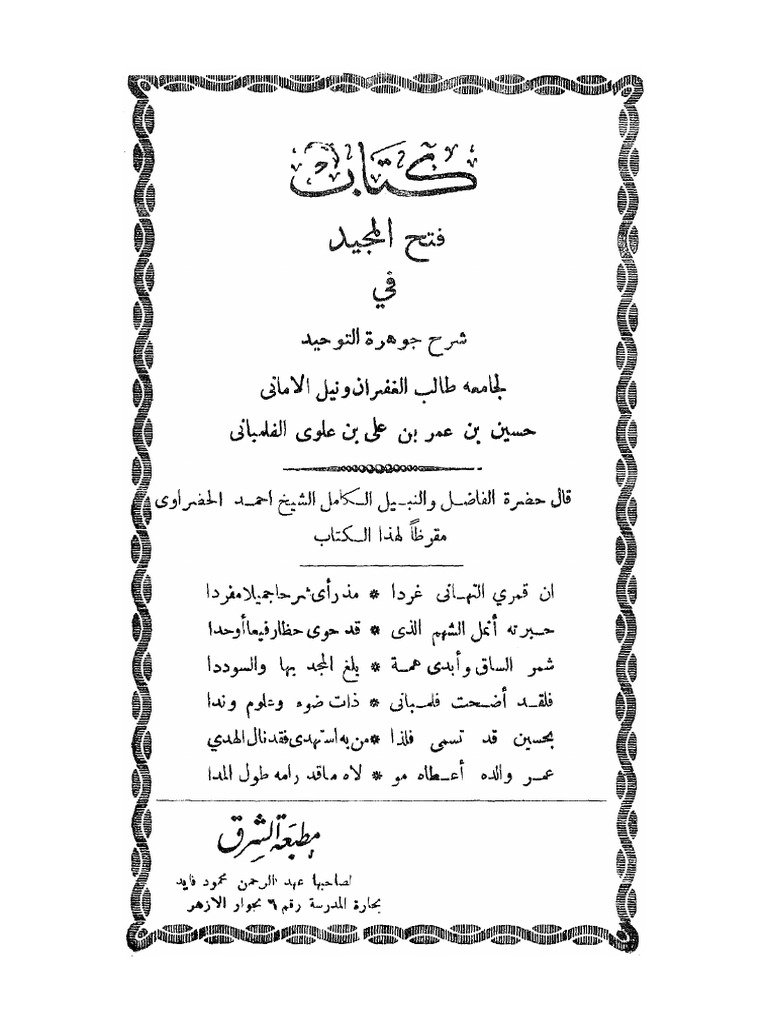 كتاب
فتح المجيد
في
شرح جوهرة التوحيد
لجامعه طالب الغفران ونيل الامانى
حسين بن عمر بن على بن علوى الفلمبانى
قال حضرة الفاضل والنبيل الكامل الشيخ احمد الحضراوى
مقرظاً لهذا الكتاب
ان قمري التهانى غردا * مذ رأى شرحا جميلا مفردا
حبرته أنمل الشهم الذى * قد حوى حظا رفيعا أوحدا
شمر الساق وأبدى همة * بلغ المجد بها والسوددا
فلقد أضحت فلمبانى * ذات ضوء وعلوم وندا
بحسين قد تسمى فلذا * من به استهدى فقد نال الهدي
عمر والده أعطاه مو * لاه ما قد رامه طول المدا
مطبعة الشرق
لصاحبها عبد الرحمن محمود فايد
بحارة المدرسة رقم ٦ بجوار الازهر